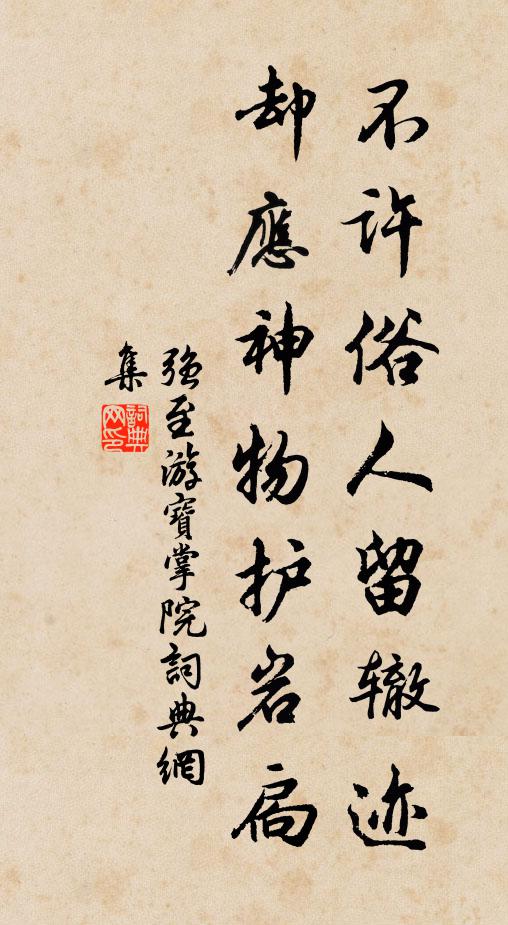 不许俗人留辙迹
却應神物护岩扃
强至游寶掌院詞典網
集
詞典网印